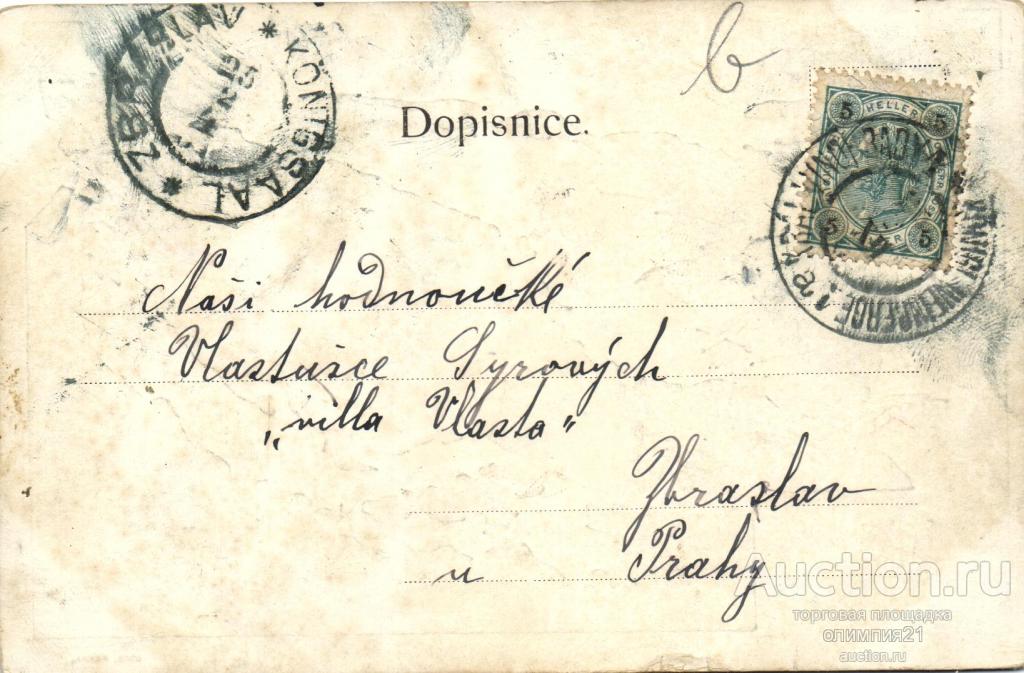 b
Dopisnice.
ZBRASLAV * KÖNIGSAAL *
5 HELLER 5
5 HELLER 5
Naši hodnoučké
Vlastušce Syrových
„villa Vlasta"
Zbraslav
u Prahy
Auction.ru
торговая площадка
олимпия21
auction.ru